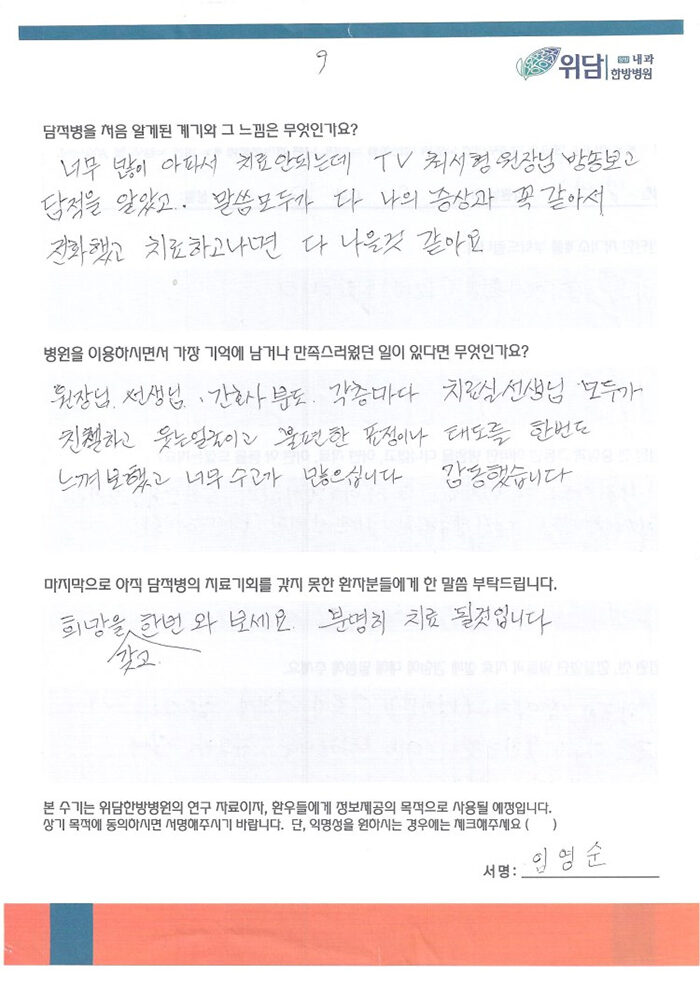 9
위담 양방 내과
한방병원
담적병을 처음 알게된 계기와 그 느낌은 무엇인가요?
너무 많이 아파서 치료안되는데 TV 최서형 원장님 방송보고
담적을 알았고. 말씀모두가 다 나의 증상과 꼭 같아서
전화했고 치료하고나면 다 나을것 같아요
병원을 이용하시면서 가장 기억에 남거나 만족스러웠던 일이 있다면 무엇인가요?
원장님, 선생님, 간호사 분도. 각층마다 치료실선생님 모두가
친절하고 웃는얼굴이고 불편한 표정이나 태도를 한번도
느껴 못했고 너무 수고가 많으십니다 감동했습니다
마지막으로 아직 담적병의 치료기회를 갖지 못한 환자분들에게 한 말씀 부탁드립니다.
희망을 한번 와 보세요. 분명히 치료 될것입니다
갖고
본 수기는 위담한방병원의 연구 자료이자, 환우들에게 정보제공의 목적으로 사용될 예정입니다.
상기 목적에 동의하시면 서명해주시기 바랍니다. 단, 익명성을 원하시는 경우에는 체크해주세요 ( )
서명: 임영순